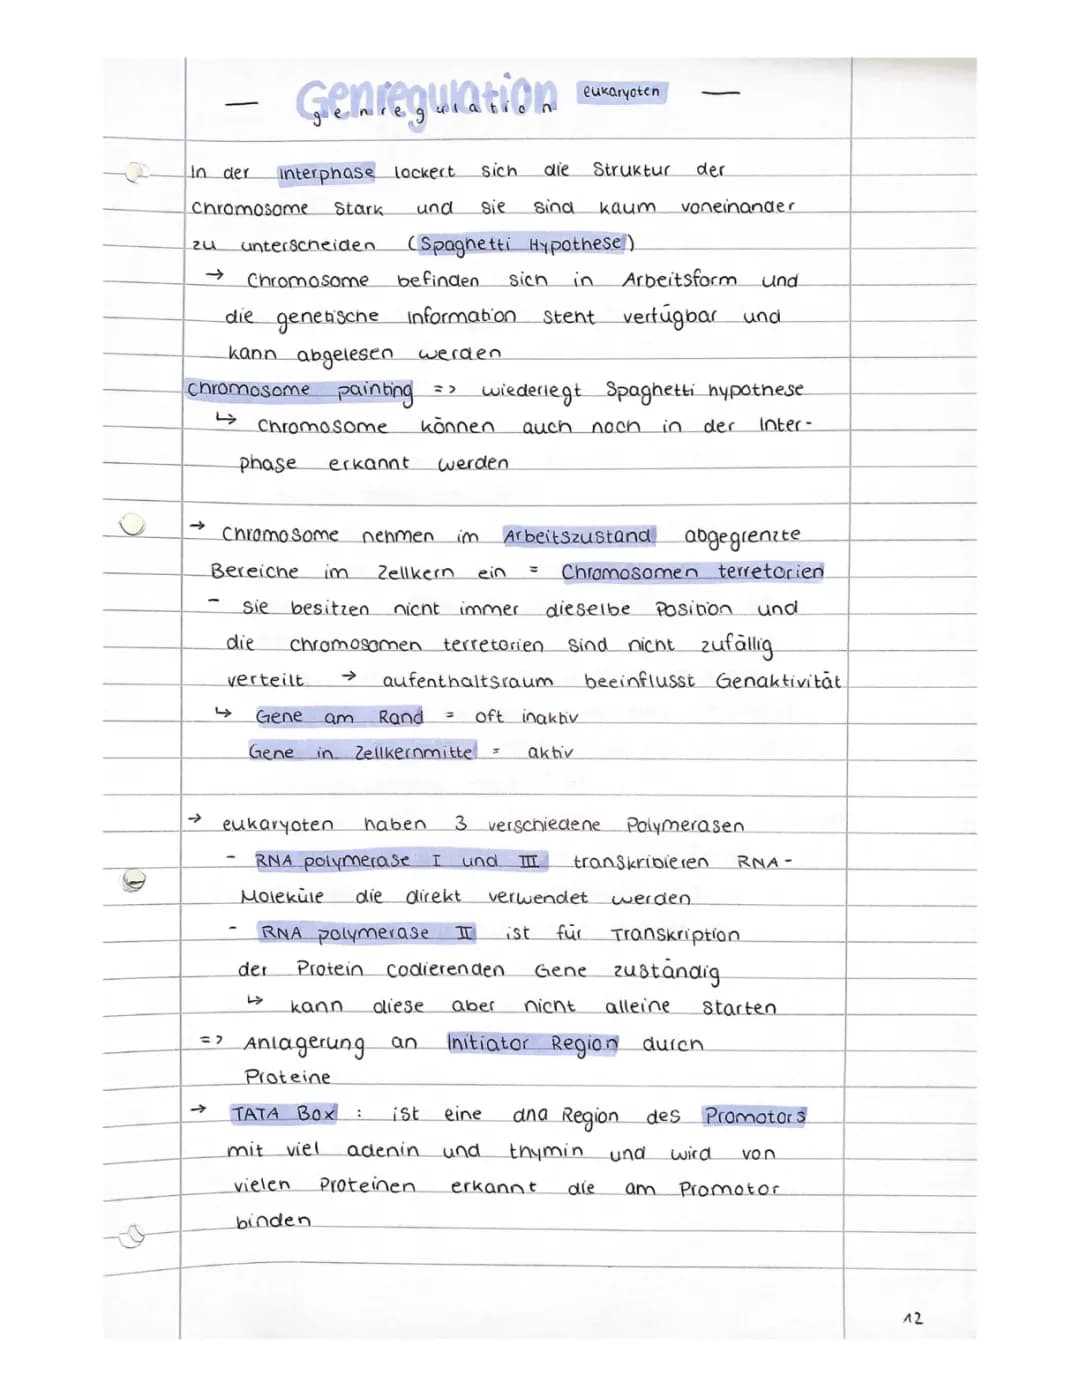 — Genregulation eukaryoten —
genregulation
In der Interphase lockert sich die Struktur der
Chromosome stark und sie sind kaum voneinander
zu unterscheiden (Spaghetti Hypothese)
→ Chromosome befinden sich in Arbeitsform und
die genetische Information steht verfügbar und
kann abgelesen werden
chromosome painting => wiederlegt Spaghetti hypothese
↳ Chromosome können auch noch in der Inter-
phase erkannt werden
→ Chromosome nehmen im Arbeitszustand abgegrenzte
Bereiche im Zellkern ein = Chromosomen terretorien
- sie besitzen nicht immer dieselbe Position und
die chromosomen terretorien sind nicht zufällig
verteilt → aufenthaltsraum beeinflusst Genaktivität
↳ Gene am Rand = oft inaktiv
Gene in Zellkernmitte = aktiv
→ eukaryoten haben 3 verschiedene Polymerasen
- RNA polymerase I und III transkribieren RNA-
Moleküle die direkt verwendet werden
- RNA polymerase II ist für Transkription
der Protein codierenden Gene zuständig
↳ kann diese aber nicht alleine starten
=> Anlagerung an Initiator Region durch
Proteine
→ TATA Box : ist eine dna Region des Promotors
mit viel adenin und thymin und wird von
vielen Proteinen erkannt die am Promotor
binden
12